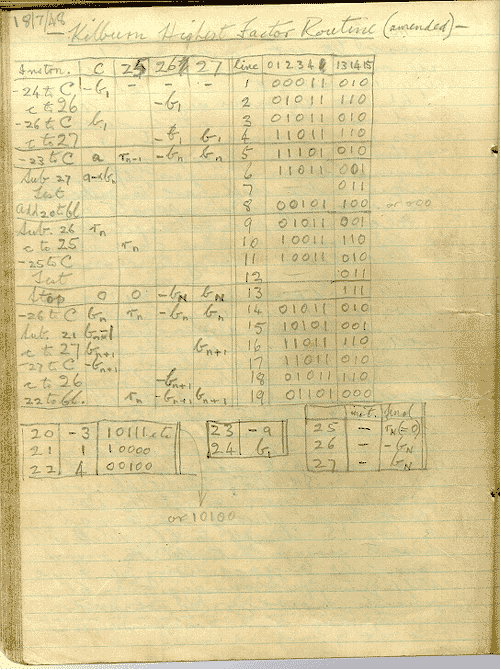 18/7/48
Kilburn Highest Factor Routine (amended) -
Instn. C 25 26 27 line 0 1 2 3 4 13 14 15
-24 to C -b1 - - - 1 00011 010
c to 26 -b1 2 01011 110
-26 to C b1 3 01011 010
c to 27 -b1 b1 4 11011 110
-23 to C a rn-1 -bn bn 5 11101 010
Sub 27 a-bn 6 11011 001
Test 7 011
Add 20 to bl. 8 00101 100 or 000
Sub. 26 rn 9 01011 001
c to 25 rn 10 10011 110
-25 to C 11 10011 010
Test 12 011
Stop 0 0 -bN bN 13 111
-26 to C bn rn -bn bn 14 01011 010
Sub. 21 bn-1 15 10101 001
c to 27 bn+1 bn+1 16 11011 110
-27 to C -bn+1 17 11011 010
c to 26 -bn+1 18 01011 110
22 to bl. rn -bn+1 bn+1 19 01101 000
20 -3 10111 etc
21 1 10000
22 4 00100
23 -a
24 b1
init. final
25 - rN(=0)
26 - -bN
27 - bN
or 10100